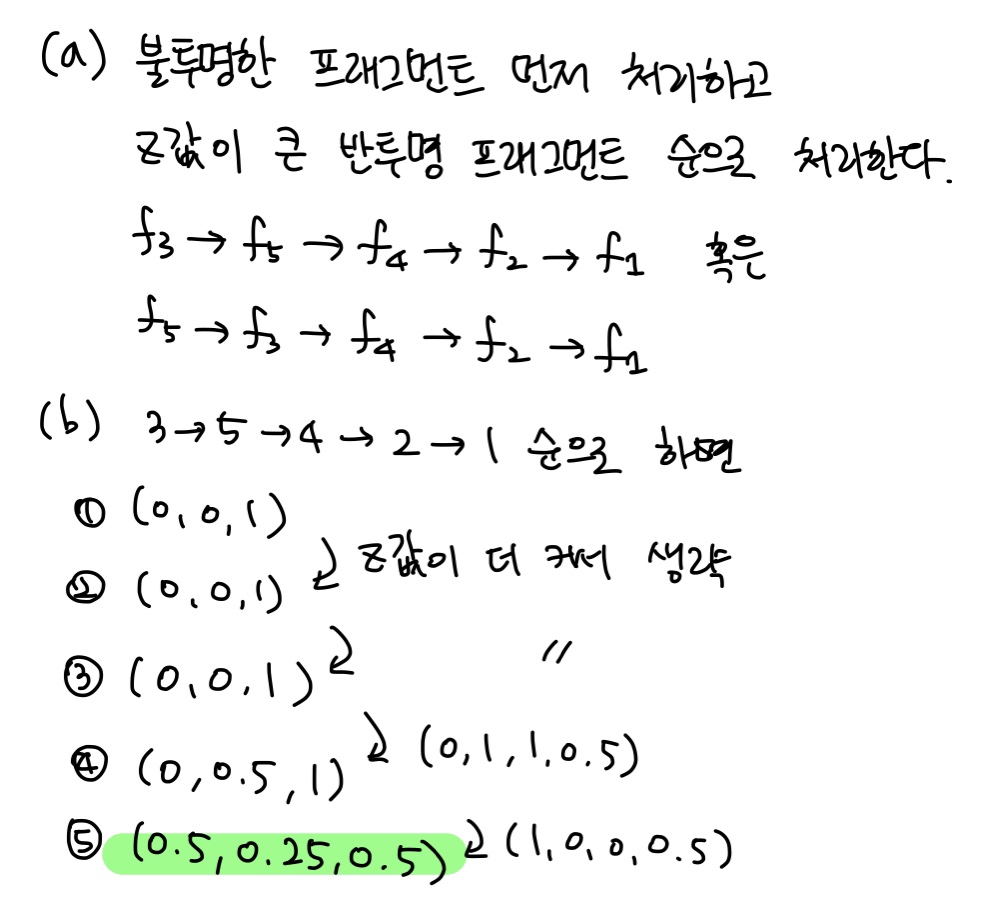 (a) 불투명한 프래그먼트 먼저 처리하고
z값이 큰 반투명 프래그먼트 순으로 처리한다.
f₃ → f₅ → f₄ → f₂ → f₁ 혹은
f₅ → f₃ → f₄ → f₂ → f₁
(b) 3→5→4→2→1 순으로 하면
① (0,0,1)
② (0,0,1) z값이 더 커서 생략
③ (0,0,1) 〃
④ (0,0.5,1) (0,1,1,0.5)
⑤ (0.5,0.25,0.5) (1,0,0,0.5)